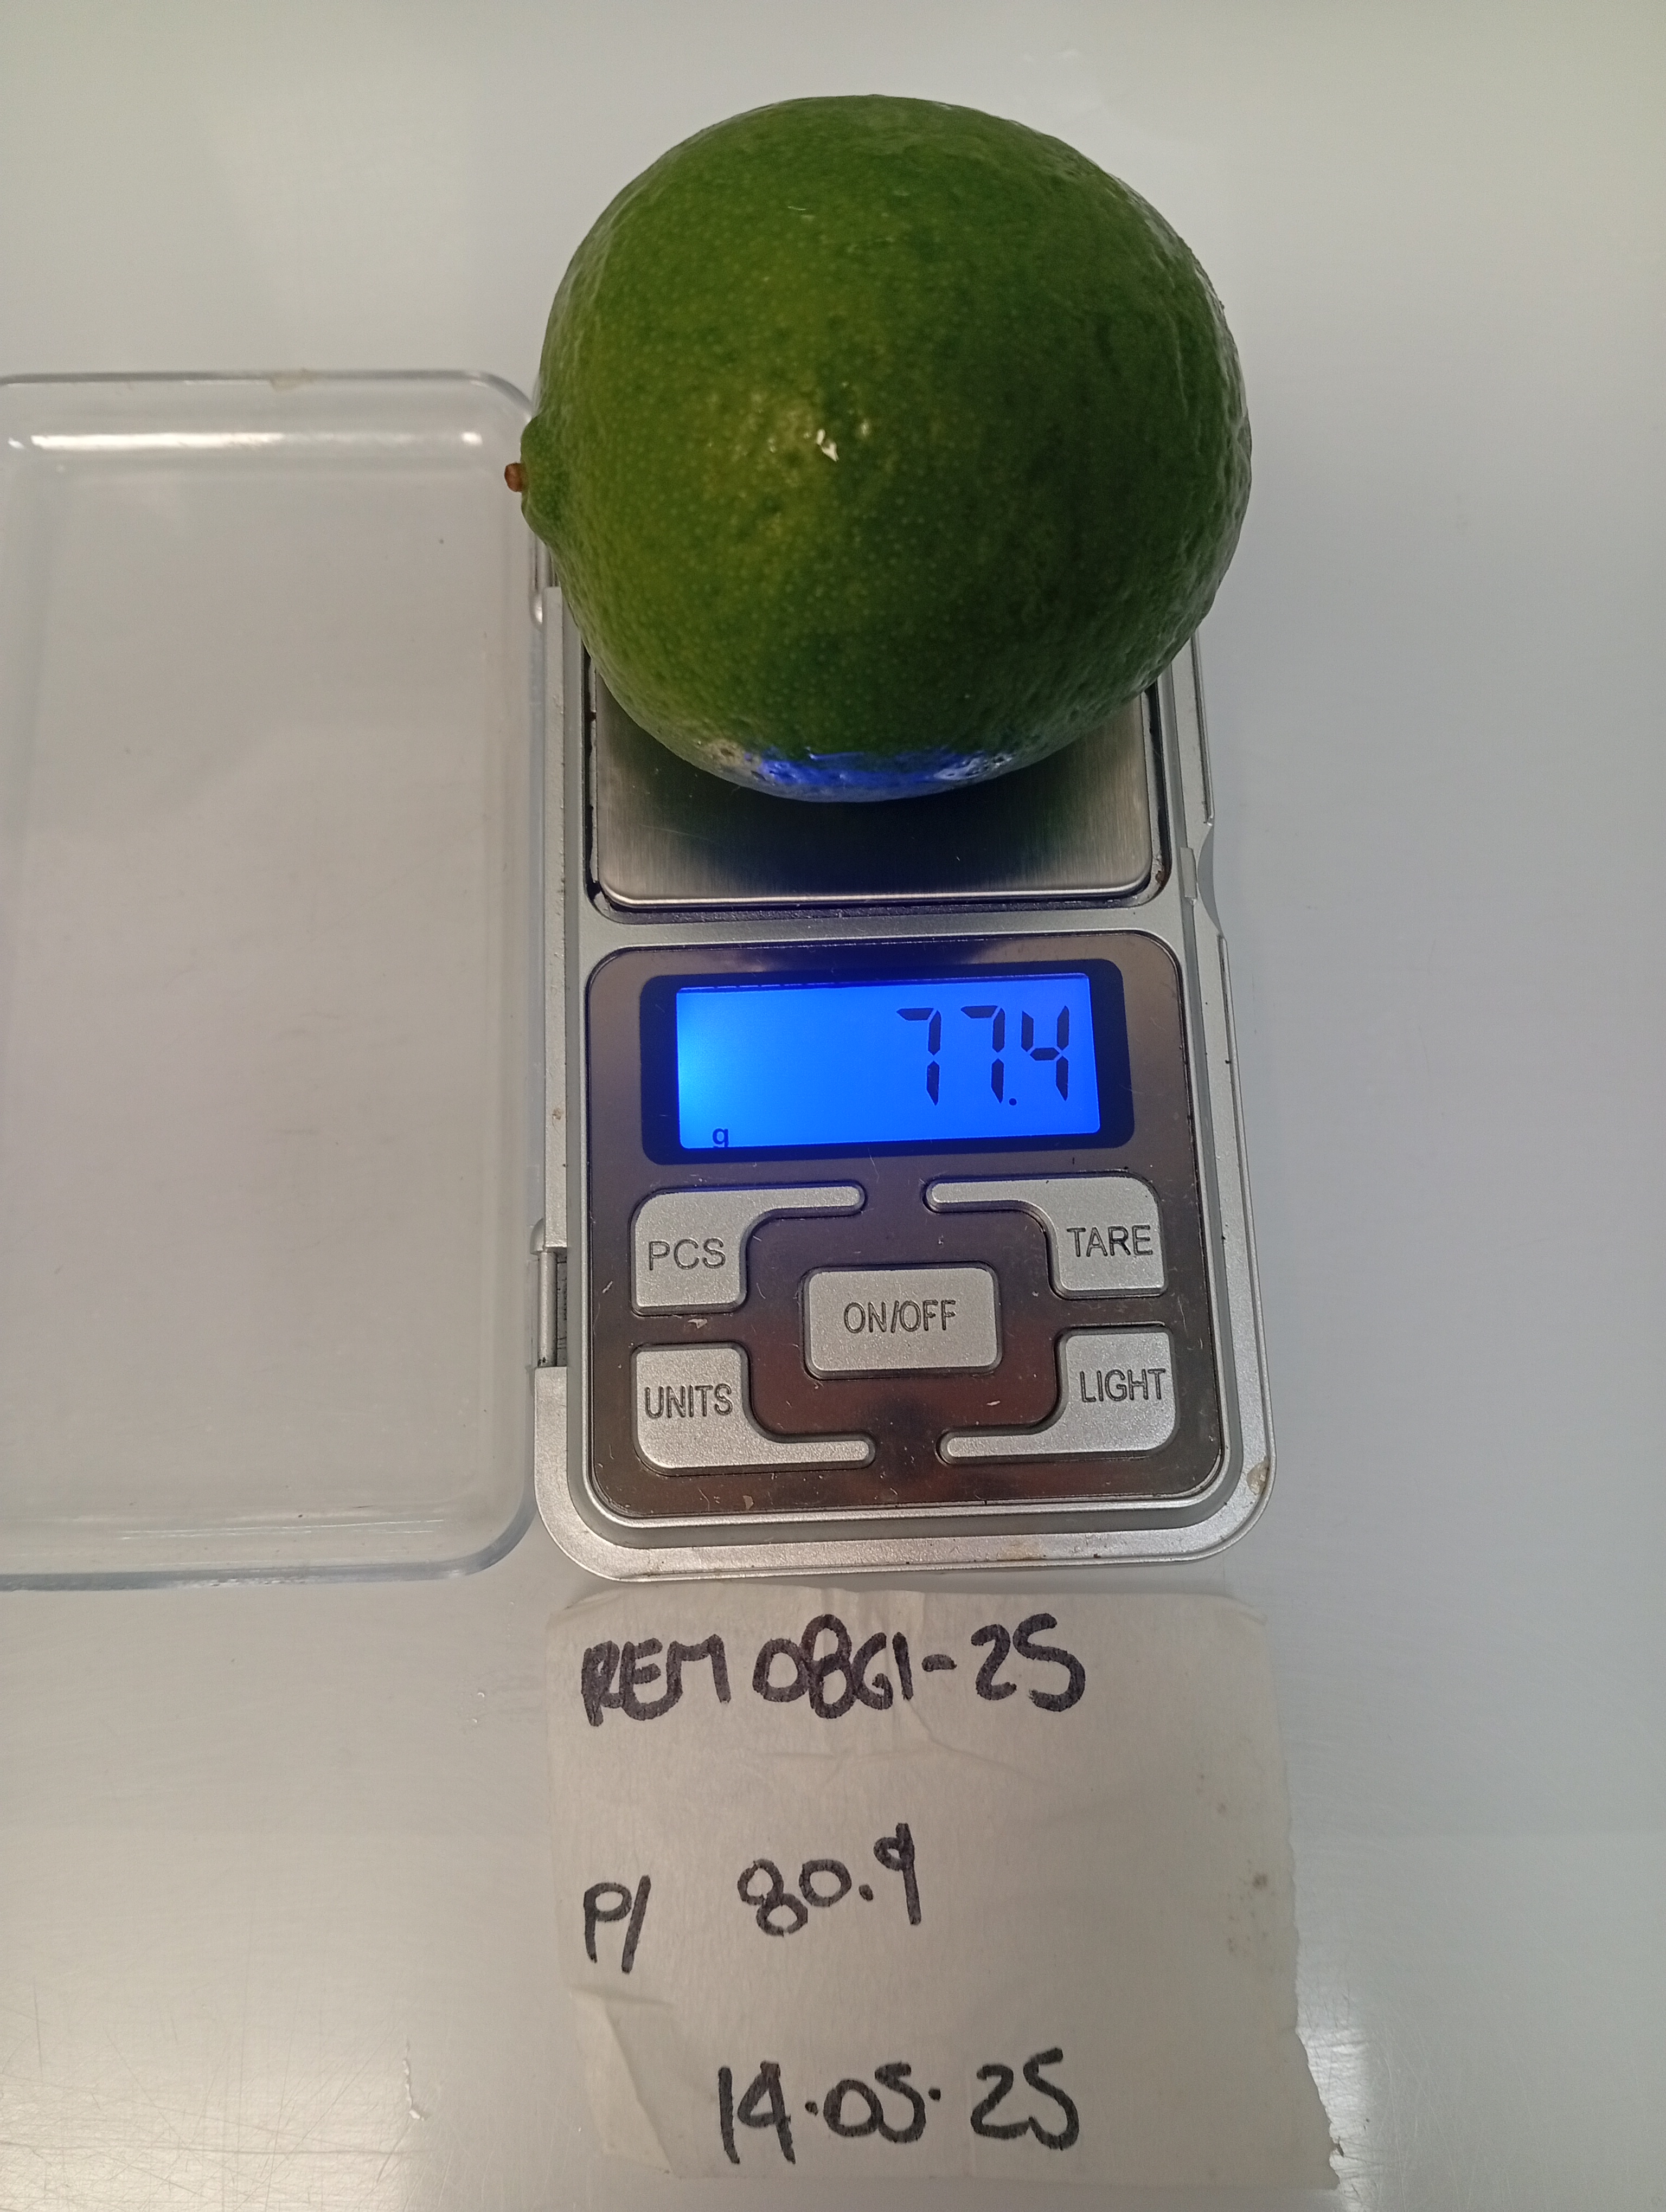 77.4
g
PCS
TARE
ON/OFF
UNITS
LIGHT
REM 0861-25
P/ 80.9
14.05.25